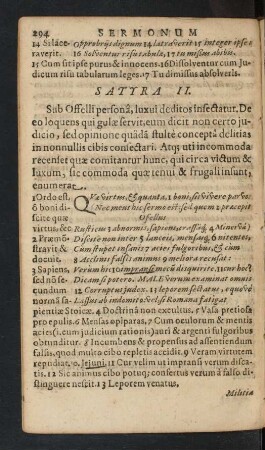 294 SERMONUM
14 Si lace- Opprobrijs dignum 14 latraverit 15 integer ipse?
raverit. 16 Solventur risu tabulæ, 17 tu missus abibis.
15 Cum sit ipse purus & innocens. 16 Dissolventur cum Ju-
dicum risu tabularum leges. 17 Tu dimissus absolveris.
SATYRA II.
Sub Offelli personâ, luxui deditos insectatur. De
eo loquens qui gulæ servit, eum dicit non certo ju-
dicio, sed opinione quâdā stultè conceptâ delitias
in nonnullis cibis consectari. Atq; uti incommoda
recenset quæ comitantur hunc, qui circa victum &
luxum, sic commoda quæ tenui & frugali insunt,
enumerat.
1 Ordo est. Quæ virtus, & quanta, 1 boni, sit vivere parvo:
ô boni di- Nec meus hic sermo est: sed quem 2 præcepit
scite quæ Ofellus
virtus, &c. Rusticus 3 abnormis, sapiens, crassâq; 4 Minervâ)
2 Præmō- Discite non inter 5 lances, mensasq; 6 nitentes,
stravit & Cum stupet insanis 7 acies fulgoribus, & cum
docuit 8 Acclinis falsis animus 9 meliora recusat:
3 Sapiens, Verùm hic 10 impransi mecū disquirite. 11 cur hoc?
sed nō se- Dicam si potero. MALE verum examinat omnis
cundum 12 Corruptus judex. 13 leporem sectatus, equóvè
normā sa- Lassus ab indomito: vel, si Romana fatigat
pientiæ Stoicæ. 4 Doctrinâ non excultus. 5 Vasa pretiosa
pro epulis. 6 Mensas opiparas. 7 Cum oculorum & mentis
acies (i. cum judicium rationis) auri & argenti fulgoribus
obtunditur. 8 Incumbens & propensus ad assentiendum
falsis, quod multa cibo repletis accidit. 9 Veram virtutem
repudiat. 10 Jejuni. 11 Cur velim ut impransi verum disca-
tis. 12 Sic animus cibo potuq; confertus verum à falso di-
stinguere nescit. 13 Leporem venatus.
Militiâ